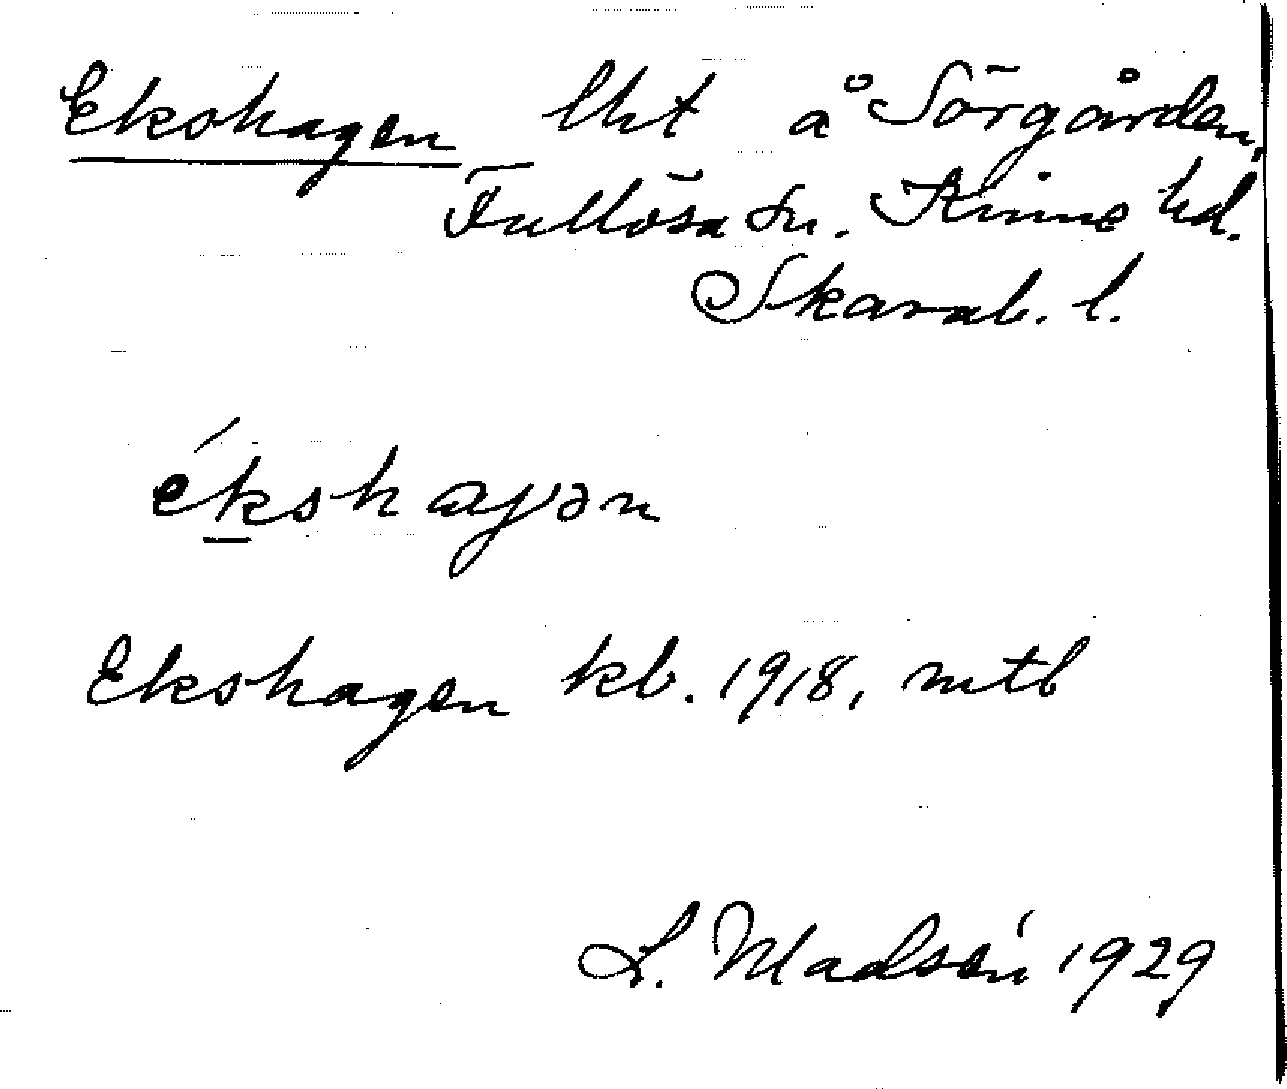 Ekshagen lht å Sörgården,
Fullösa sn. Kinne hd.
Skarab. l.
ékshaγən
Ekshagen kb. 1918, mtb
L. Madsén 1929